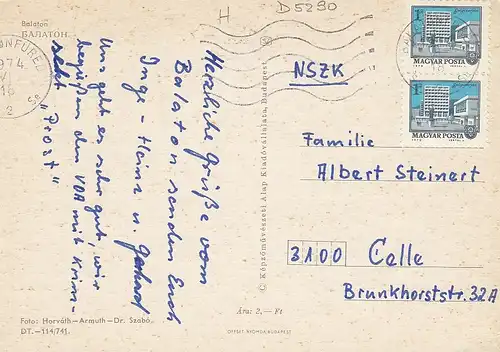 Balaton
БАЛАТОН.
H
D5290
1974
NSZK
1Ft
MAGYAR POSTA
1Ft
MAGYAR POSTA
Herzliche Grüße vom
Balaton senden Euch
Inge - Heinz u. Gerhard
Uns geht es sehr gut, wir
begrüßen den VDA mit Krim-
sekt
"Prost"
© Képzőművészeti Alap Kiadóvállalata, Budapest
Familie
Albert Steinert
3100 Celle
Brunkhorststr. 32A
Ára: 2,— Ft
Foto: Horváth—Armuth—Dr. Szabó
DT.—114/741.
OFFSET NYOMDA BUDAPEST